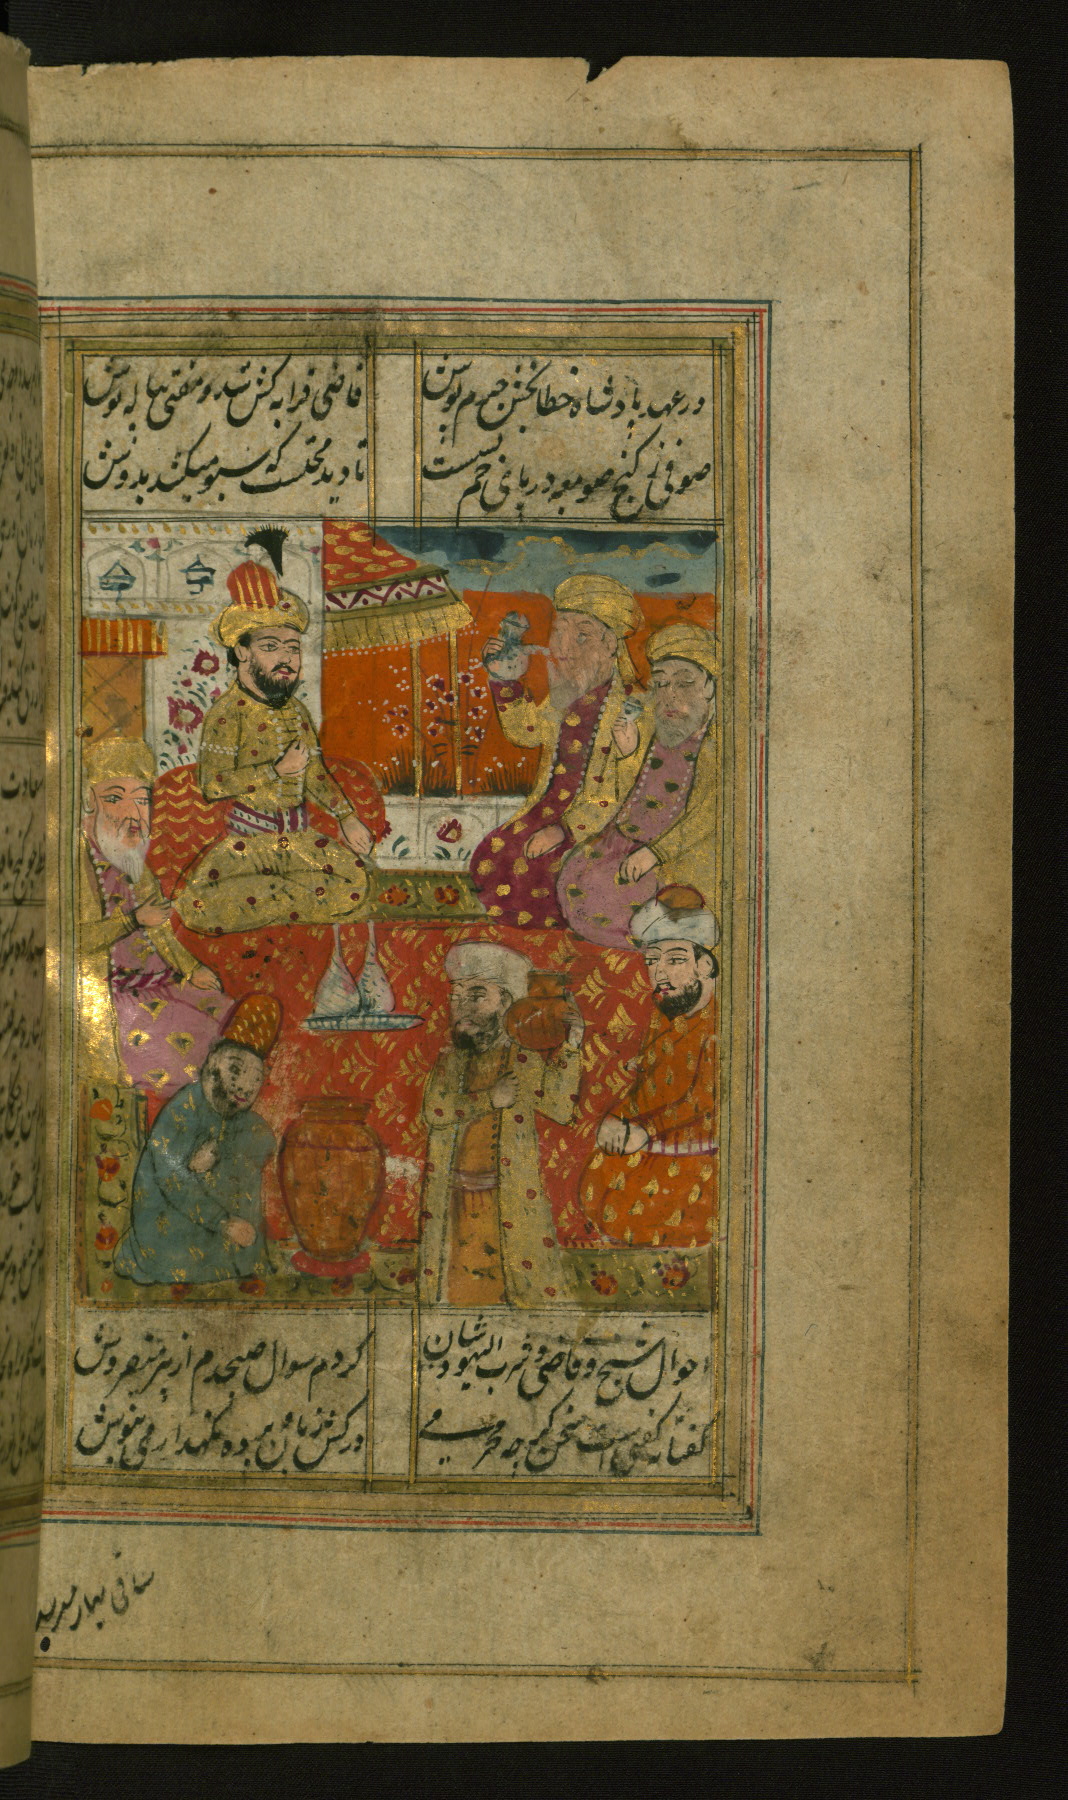 در عهد پادشاه خطابخش جرم پوش
قاضی قرابه کش شد و مفتی پیاله نوش
صوفی ز کنج صومعه در پای خم نشست
تا دید محتسب که سبو میکشد بدوش
احوال شیخ و قاضی و شرب الیهودشان
کردم سوال صبحدم از پیر میفروش
گفتا نه گفتنی است سخن گرچه محرمی
درکش زبان و پرده نگهدار و می بنوش
ساقی بهار میرسد